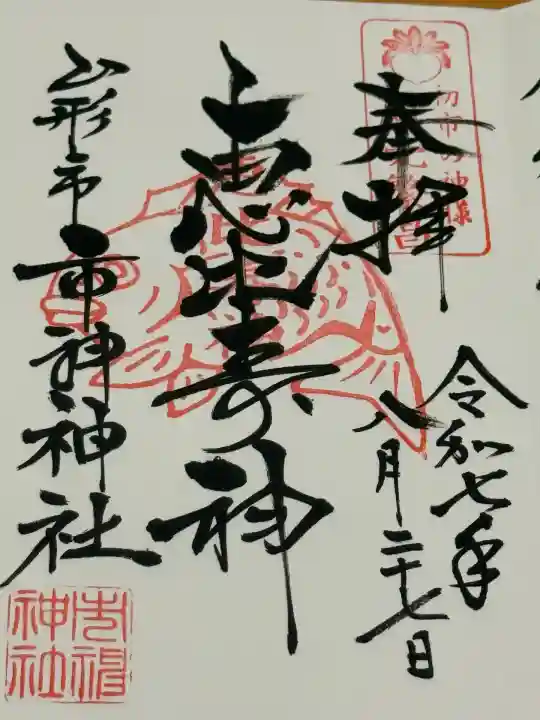 奉拝
初市の神様
令和七年
八月二十七日
上恵比寿神
山形市
市神神社
市神
神社